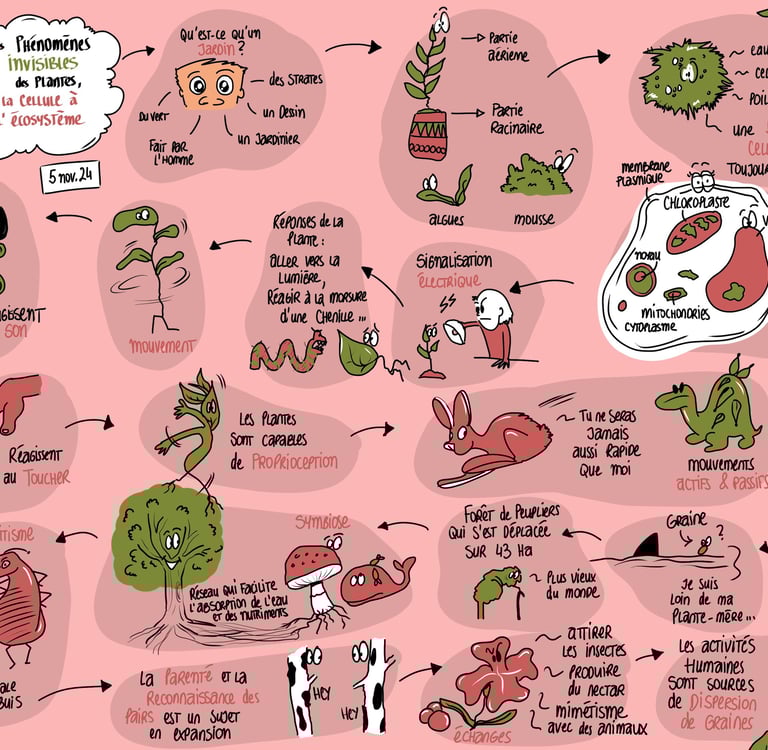 Phénomènes
invisibles
des Plantes,
la cellule à
l'écosystème
5 nov. 24
Qu'est-ce qu'un
Jardin ?
des Strates
un Dessin
un Jardinier
Fait par
l'Homme
Du vert
Partie
aérienne
Partie
Racinaire
algues
mousse
eau
poil
une
membrane
plasmique
Chloroplaste
noyau
mitochondries
cytoplasme
Signalisation
électrique
Réponses de la
Plante :
aller vers la
lumière,
Réagir à la morsure
d'une Chenille ...
mouvement
son
Réagissent
au Toucher
Les Plantes
sont capables
de Proprioception
Tu ne seras
Jamais
aussi rapide
que moi
mouvements
actifs & passifs
Graine
?
Je suis
loin de ma
Plante-mère...
Forêt de Peupliers
qui s'est déplacée
sur 43 Ha
Plus vieux
du monde
Symbiose
Réseau qui facilite
l'absorption de l'eau
et des nutriments
La Parenté et la
Reconnaissance des
Pairs est un sujet
en expansion
Hey
Hey
échanges
attirer
les insectes
Produire
du nectar
mimétisme
avec des animaux
Les activités
Humaines
sont sources
de Dispersion
de Graines